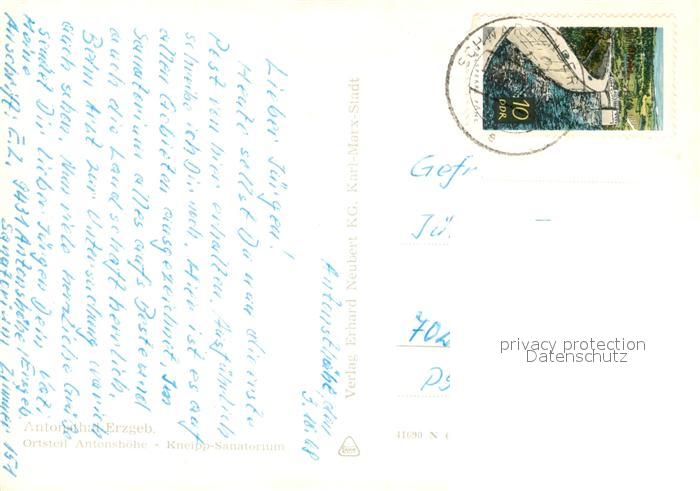 Antonshöhe, den
3.10.68
Lieber Jürgen!
Heute sollst Du nun die erste
Post von hier erhalten. Ausführlich
schreibe ich Dir noch. Hier ist es auf
allen Gebieten ausgezeichnet. Im
Sanatorium alles aufs Beste und
auch die Landschaft herrlich.
Beim Arzt zur Untersuchung war ich
auch schon. Nun viele herzliche Grüße
sendet Dir lieber Jürgen Dein Vati.
Meine
Anschrift: E.L. 9431 Antonshöhe/Erzgeb.
Sanatorium Zimmer 151
Antonsthal Erzgeb.
Ortsteil Antonshöhe - Kneipp-Sanatorium
Verlag Erhard Neubert KG. Karl-Marx-Stadt
10
DDR
Gefr
Jü
70
Ps
41690 N
privacy protection
Datenschutz